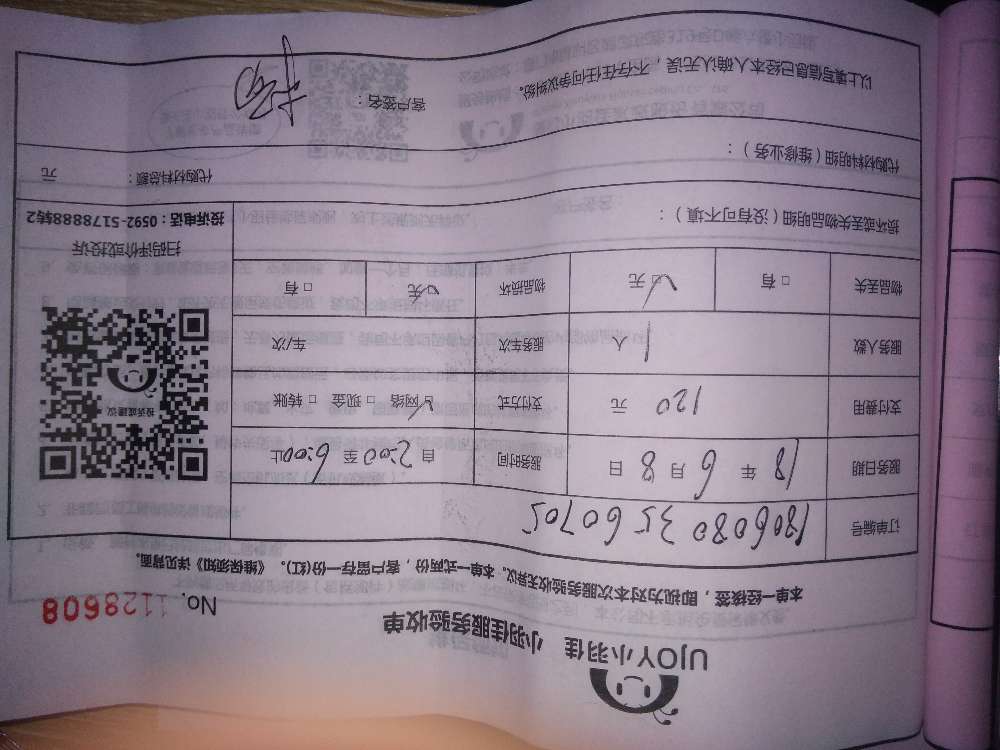 UJOY小羽佳 小羽佳服务验收单
No. 1128608
本单一经核签，即视为对本次服务验收无异议。本单一式两份，客户留存一份(红)。《维保须知》详见背面。
订单编号 180608035660705
服务日期 18 年 6 月 8 日 服务时间 自 2:00 至 6:00止
支付费用 120 元 支付方式 ☑ 网络 □ 现金 □ 转账
服务人数 1 人 服务车次 车/次
物品丢失 □ 有 ☑ 无 物品损坏 ☑ 无 □ 有
投诉或建议
扫码评价或投诉
投诉电话：0592-5178888转2
损坏或丢失物品明细（没有可不填）：
代购材料明细（维修业务）：
代购材料总额： 元
以上填写信息已经本人确认无误，不存在任何争议纠纷。
客户签名：